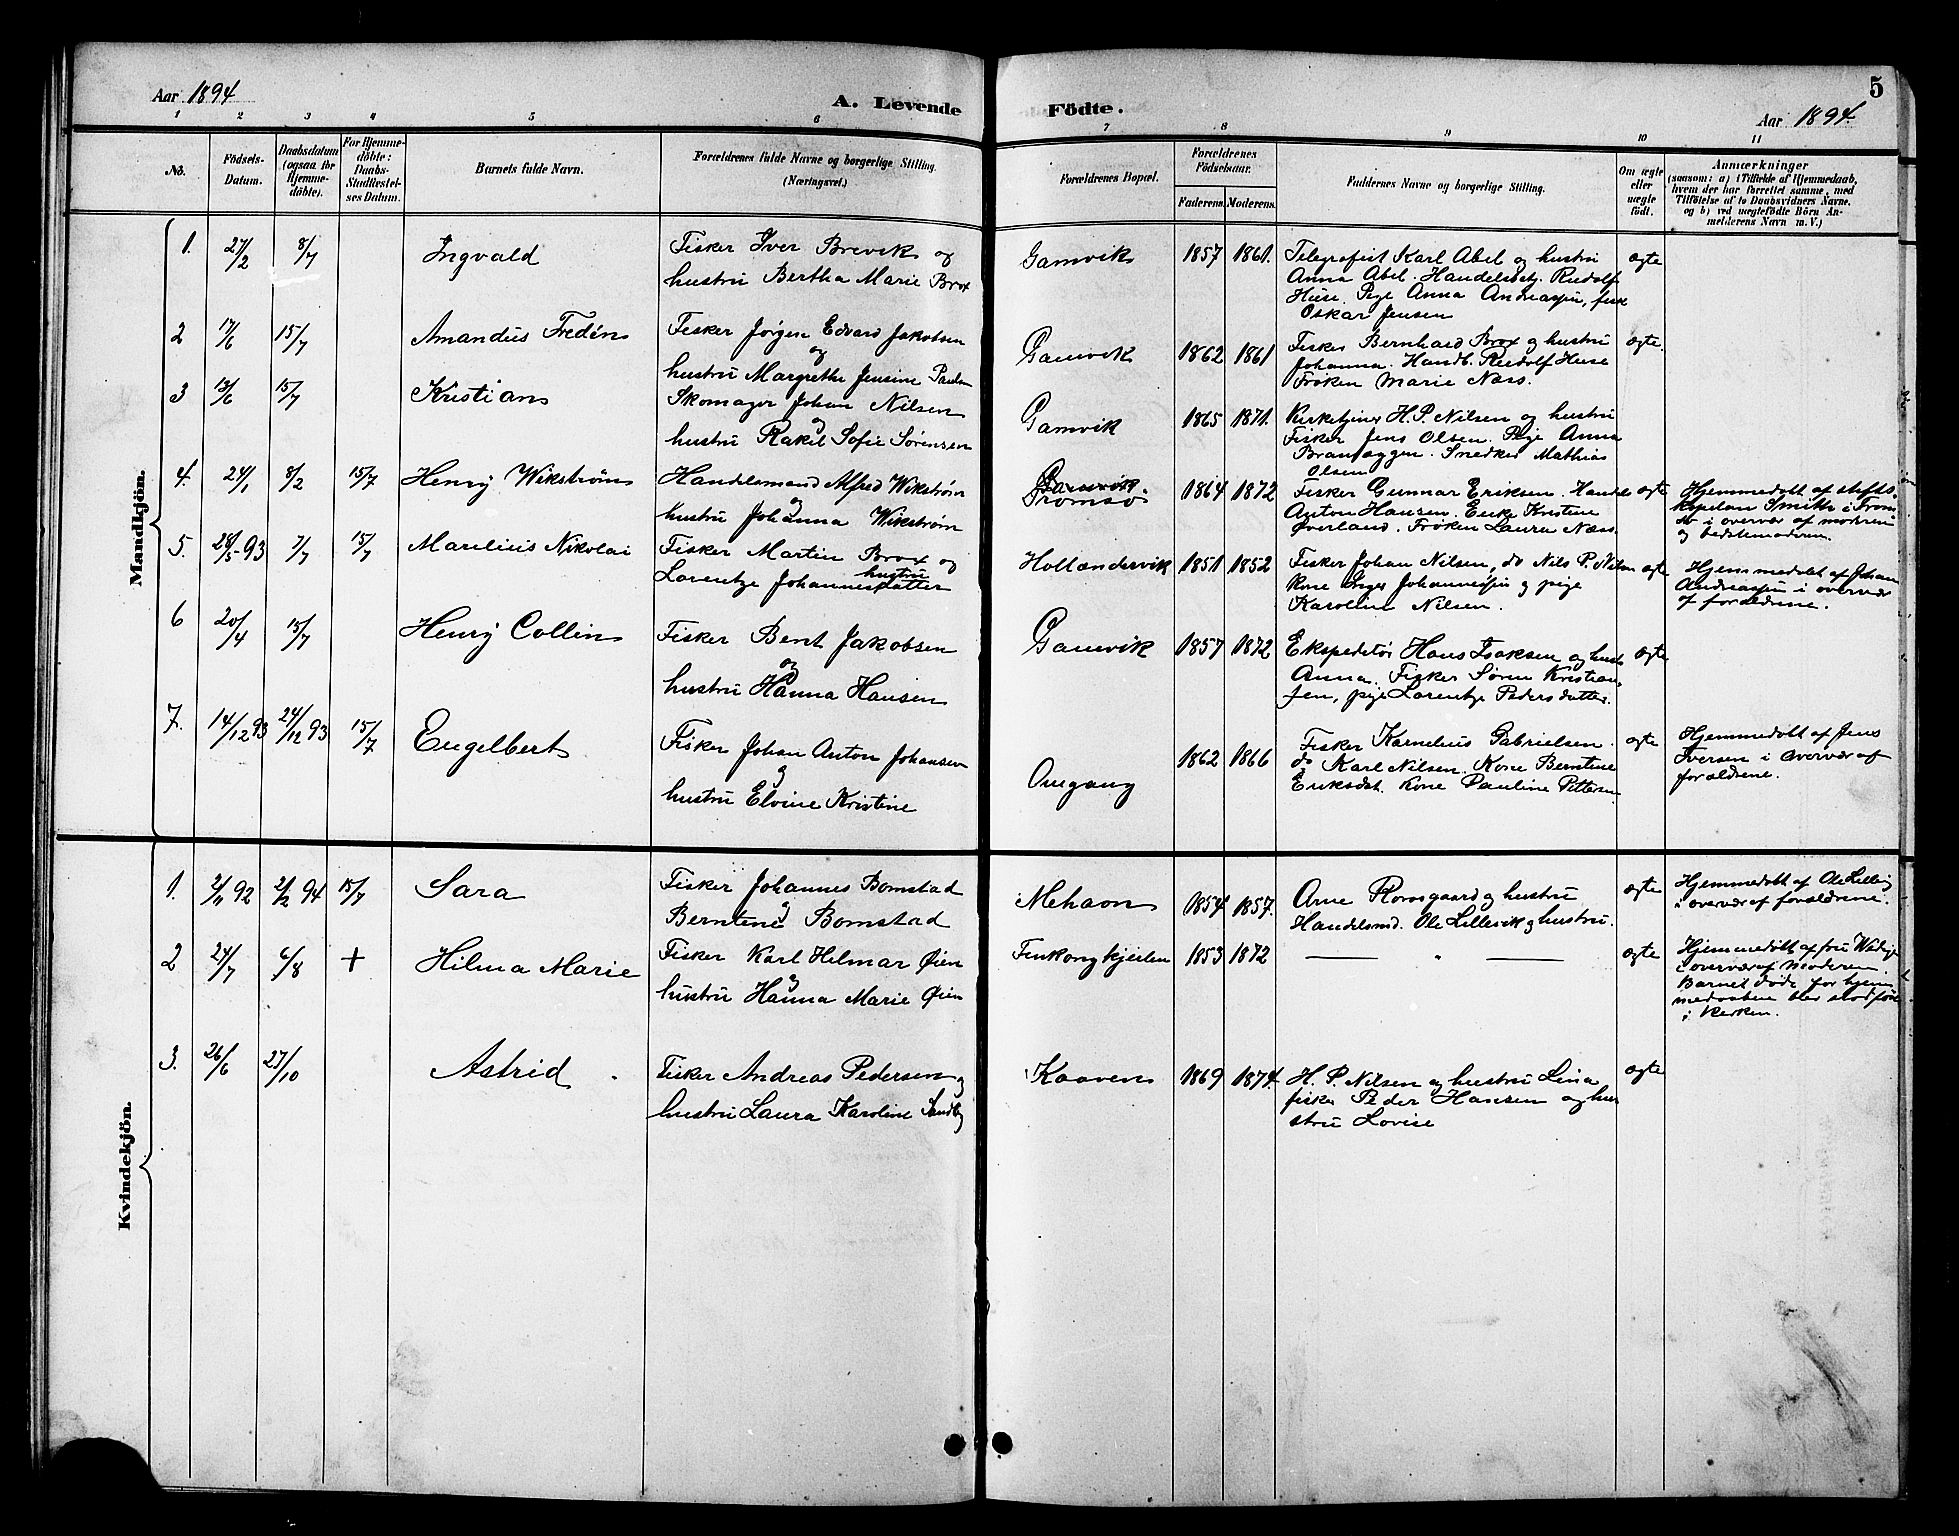 Aar 1894
A. Levende
Födte.
5
Aar 1894.
1 2 3 4 5 6 7 8 9 10 11
No.
Födsels-
Datum.
Daabsdatum
(ogsaa for
Hjemme-
döbte).
For Hjemme-
döbte:
Daabs-
Stadfæstel-
ses Datum.
Barnets fulde Navn.
Forældrenes fulde Navne og borgerlige Stilling.
(Næringsvei.)
Forældrenes Bopæl.
Forældrenes
Födselsaar.
Faderens. Moderens.
Faddernes Navne og borgerlige Stilling.
Om ægte
eller
uægte
födt.
Anmærkninger
(saasom: a) i Tilfælde af Hjemmedaab,
hvem der har forrettet samme, med
Tilföielse af to Daabsvidners Navne,
og b) ved uægtefödte Börn An-
melderens Navn m. V.)
Mandkjön.
1. 27/2 8/7 Ingvald
Fisker Iver Brevik og
hustru Bertha Marie Brox
Gamvik 1857 1861.
Telegrafist Karl Abel og hustru
Anna Abel. Handelsbetj. Rudolf
Huse. Pige Anna Andreassen, fisk
Oskar Jensen
ægte
2 17/6 15/7 Amandus Fredón
Fisker Jørgen Edvard Jakobsen
og
hustru Margrethe Jensine Paulsen
Gamvik 1862 1861
Fisker Bernhard Brox og hustru
Johanna. Handb. Rudolf Huse
Frøken Marie Næss.
ægte.
3 13/6 15/7 Kristian
Skomager Johan Nilsen
og
hustru Rakel Sofie Sørensen
Gamvik 1865 1871.
Kirketjener H. P. Nilsen og hustru
Fisker Jens Olsen. Pige Anna
Branæggen. Snedker Mathias
Olsen
4. 24/1 8/2 15/7 Henry Wikstrøm
Handelsmand Alfred Wikstrøm
og
hustru Johanna Wikstrøm
Gamvik
Tromsø. 1864 1872
Fisker Gunnar Eriksen. Handels
Anton Hansen. Enke Kristine
Øverland. Frøken Laura Næss.
ægte
Hjemmedøbt af stifts-
kapelan Smith i Trom
sø i overvær af moderen
og bedstemoderen.
5. 28/5 93 7/7 15/7 Marelius Nikolai
Fisker Martin Brox og
hustru
Lorentze Johannesdatter
Hollændervik 1851 1852
Fisker Johan Nilsen, do Nils P. Nilsen
kone Inger Johannessen og pige
Karoline Nilsen.
ægte
Hjemmedøbt af Johan
Andreassen i overvær
af forældrene.
6 20/4 15/7 Henry Collin
Fisker Bent Jakobsen
og
hustru Hanna Hansen
Gamvik 1857 1872
Ekspeditør Hans Isaksen og hust
Anna. Fisker Søren Kristian-
sen, pige Lorentze Pedersdatter.
ægte
7. 14/12 93 24/12 93 15/7 Engelbert
Fisker Johan Anton Johansen
og
hustru Elvine Kristine
Omgang 1862 1866
Fisker Kornelius Gabrielsen.
do Karl Nilsen. Kone Berntine
Eriksdat. Kone Pauline Pettersen
ægte
Hjemmedøbt af Jens
Iversen i overvær af
forældrene.
Kvindekjön.
1. 2/11 92 2/2 94 15/7 Sara
Fisker Johannes Bomstad
og
Berntine Bomstad
Mehavn 1854 1857.
Arne Romsgaard og hustru
Handelsmd. Ole Lillevik og hustru.
ægte
Hjemmedøbt af Ole Lillevig
i overvær af forældrene.
2 24/7 6/8 + Hilma Marie
Fisker Karl Hilmar Øien
og
hustru Hanna Marie Øien
Finkongkjeilen 1853 1872
— " —
ægte
Hjemmedøbt af fru Wadig
i overvær af moderen.
Barnet døde før hjem
medaaben blev stadfæs
i kirken.
3. 26/6 27/10 Astrid
Fisker Andreas Pedersen og
hustru Laura Karoline Sandby
Kaaven 1869 1874.
H. P. Nilsen og hustru Lina
fisker Peder Hansen og hu
stru Lovise
ægte